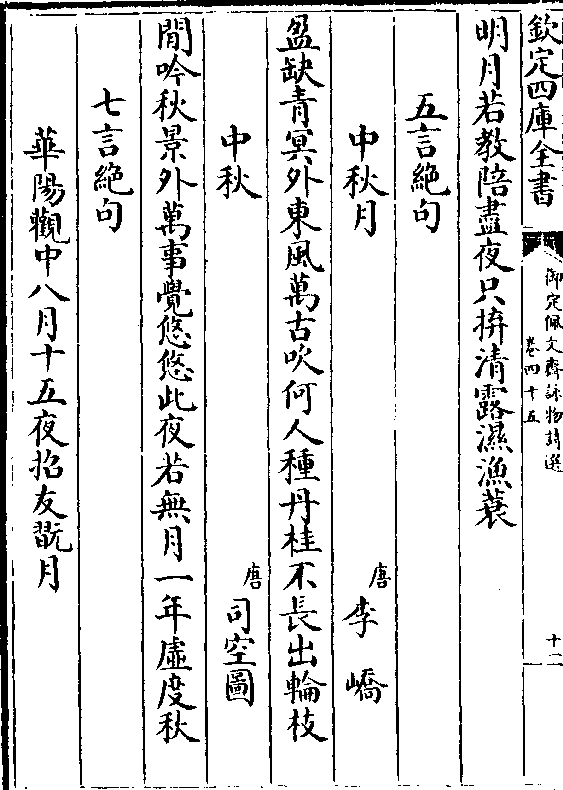 欽定四庫全書
御定佩文齋詠物詩選
卷四十五
十二
明月若教陪盡夜只拚清露濕漁蓑
五言絶句
中秋月 唐 李嶠
盈缺青冥外東風萬古吹何人種丹桂不長出輪枝
中秋 唐 司空圖
閒吟秋景外萬事覺悠悠此夜若無月一年虛度秋
七言絶句
華陽觀中八月十五夜招友翫月